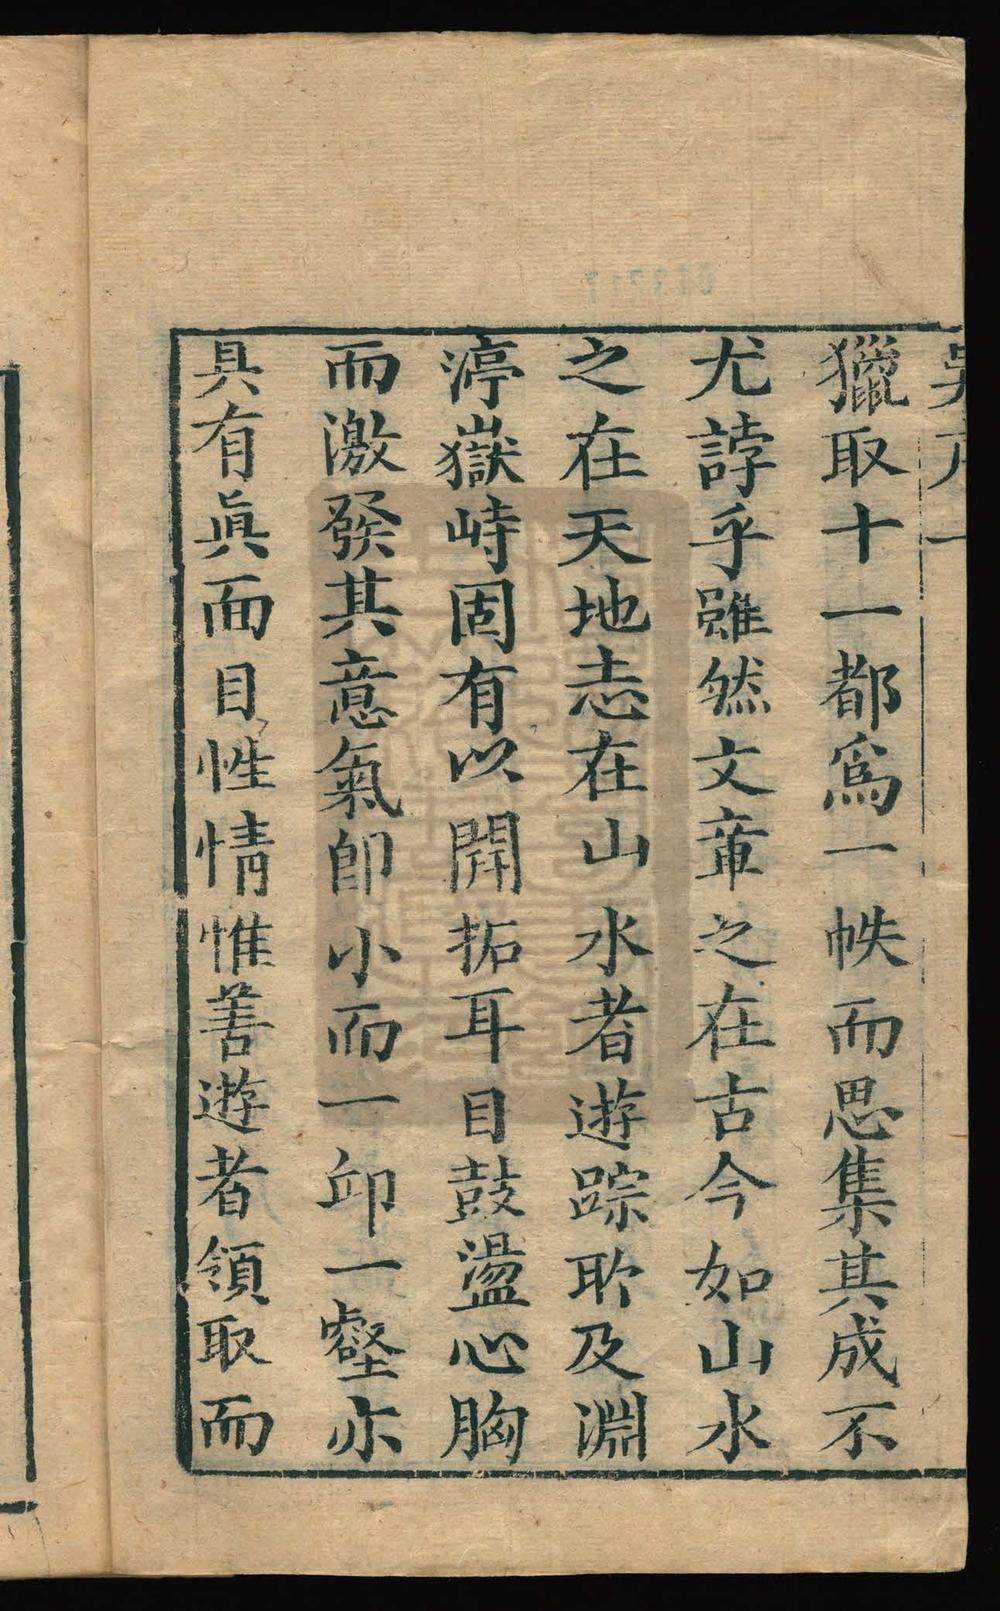 獵取十一都爲一帙而思集其成不
尤誖乎雖然文章之在古今如山水
之在天地志在山水者遊踪所及淵
渟嶽峙固有以開拓耳目鼓盪心胸
而激發其意氣卽小而一邱一壑亦
具有眞面目性情惟善遊者領取而